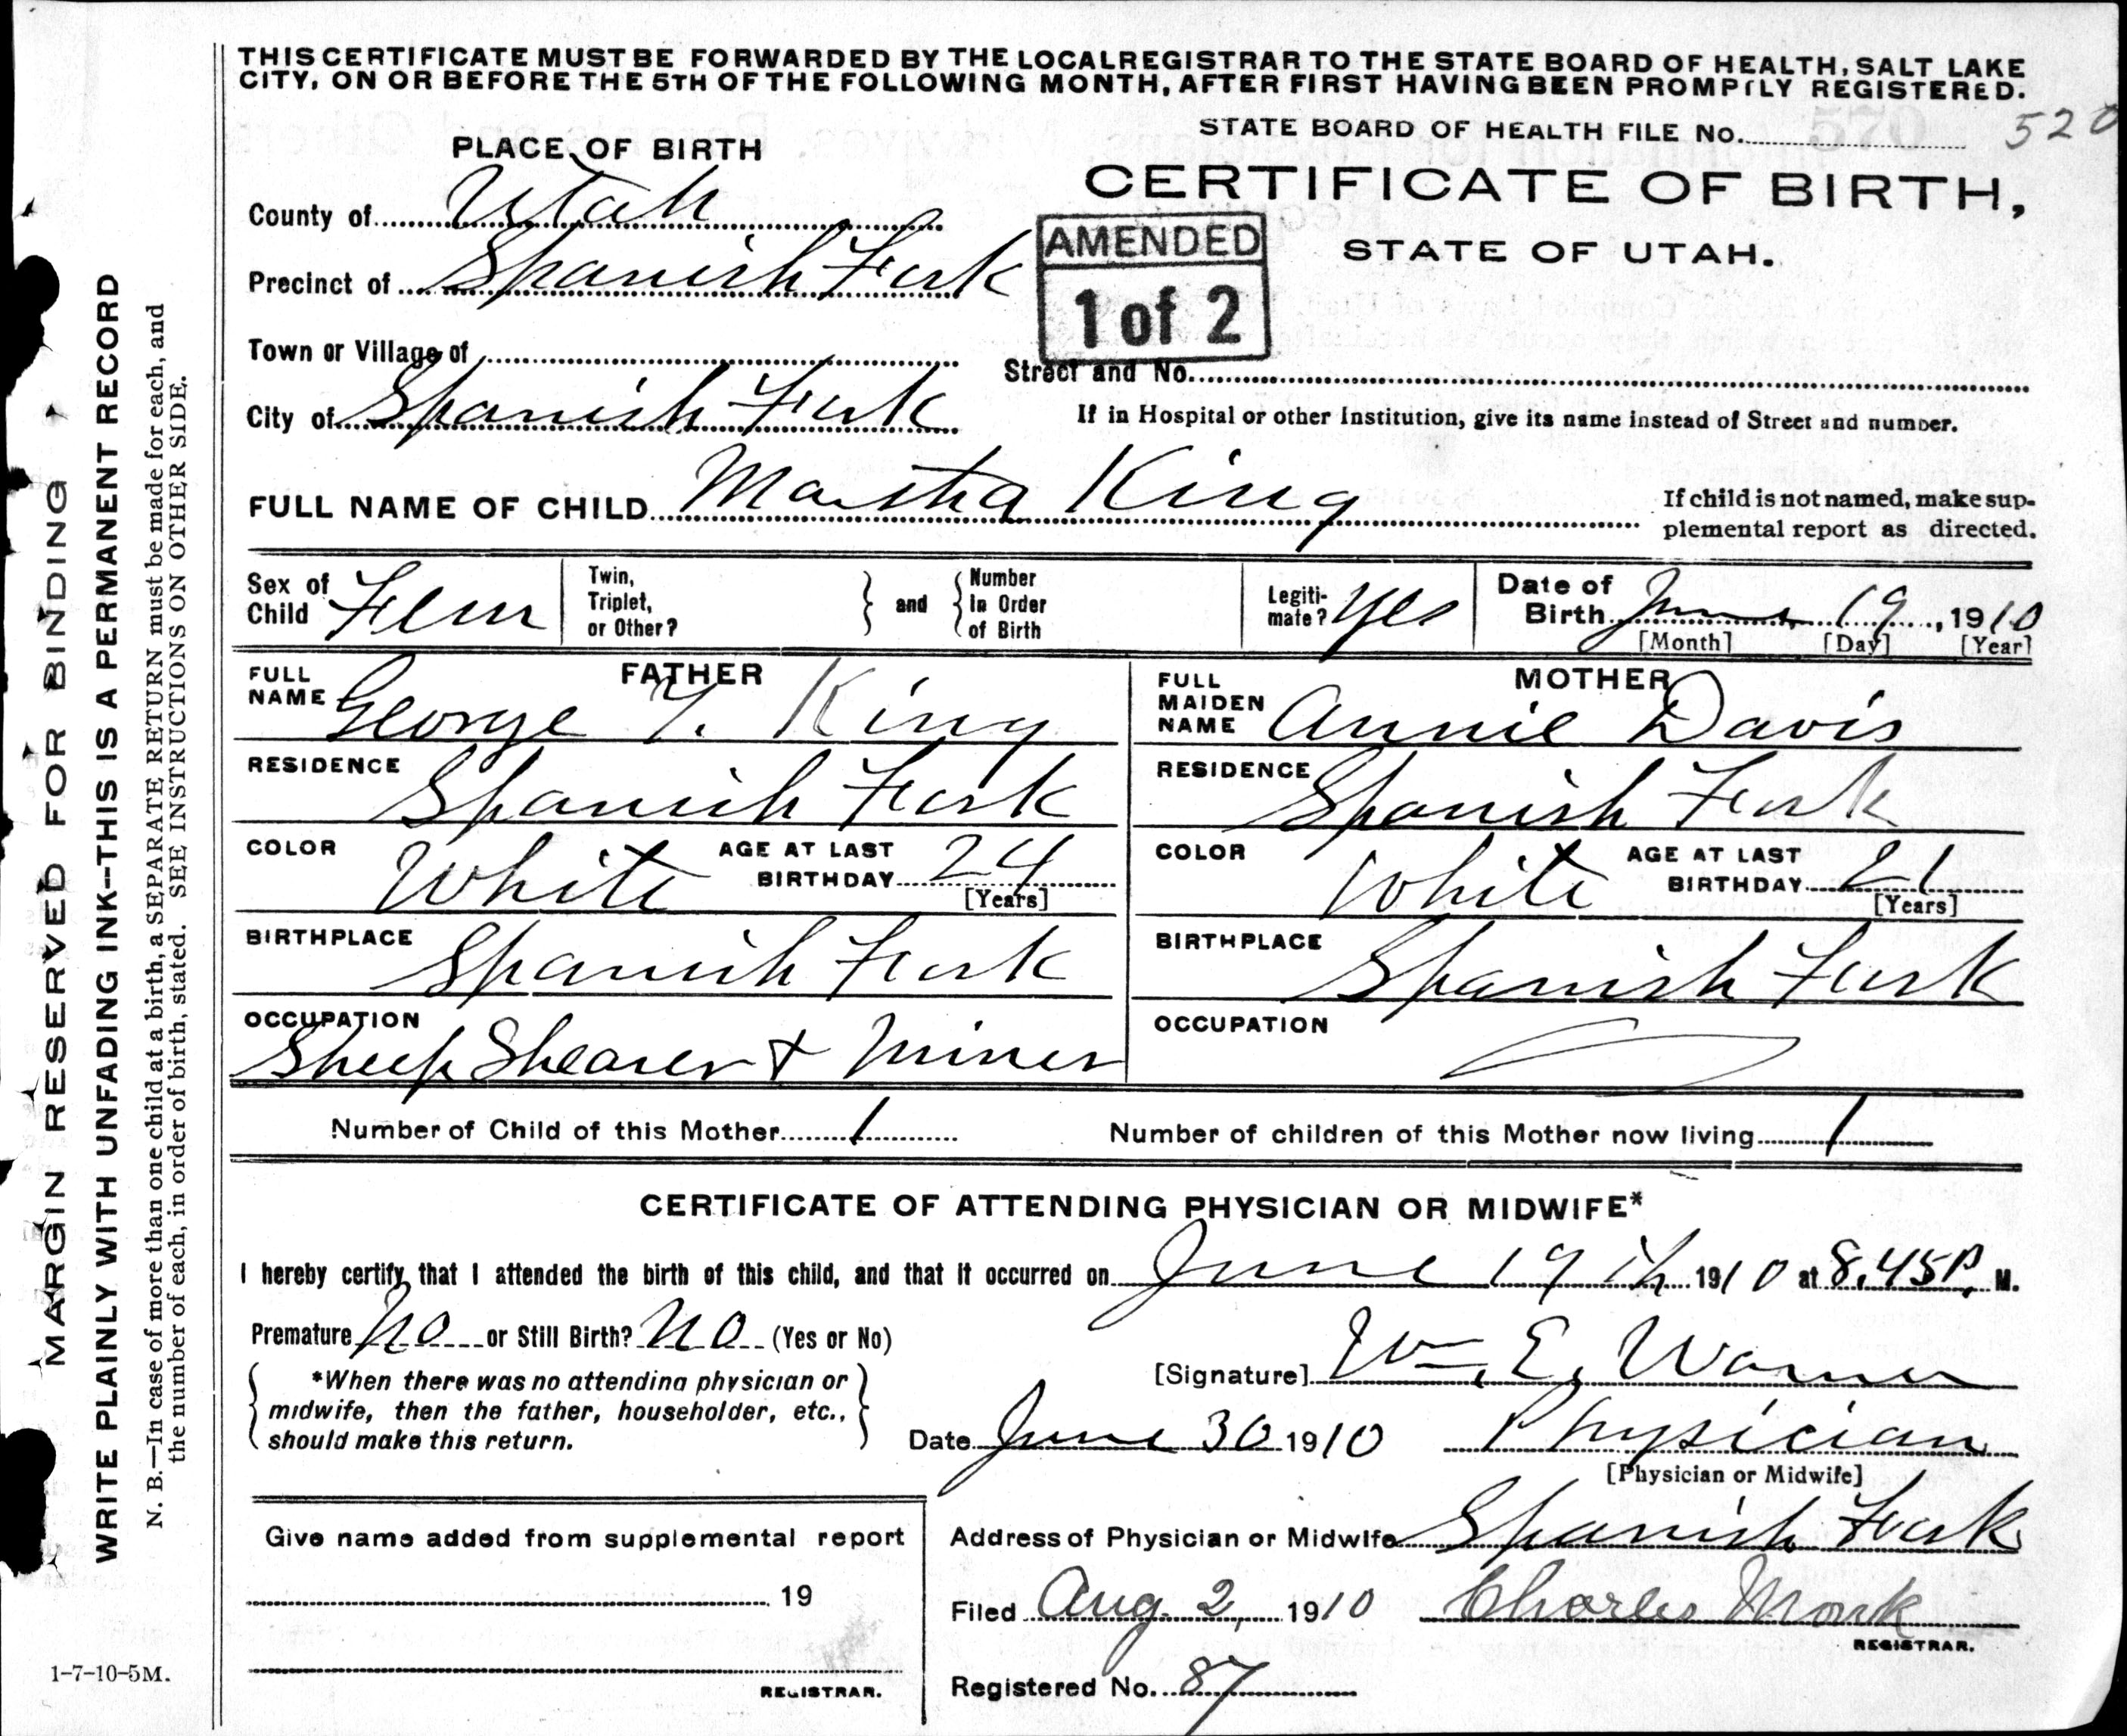 THIS CERTIFICATE MUST BE FORWARDED BY THE LOCAL REGISTRAR TO THE STATE BOARD OF HEALTH, SALT LAKE
CITY, ON OR BEFORE THE 5TH OF THE FOLLOWING MONTH, AFTER FIRST HAVING BEEN PROMPTLY REGISTERED.
STATE BOARD OF HEALTH FILE No. 520
PLACE OF BIRTH
CERTIFICATE OF BIRTH,
STATE OF UTAH.
AMENDED
1 of 2
County of Utah
Precinct of Spanish Fork
Town or Village of
Street and No.
City of Spanish Fork
If in Hospital or other Institution, give its name instead of Street and number.
FULL NAME OF CHILD Martha King
If child is not named, make sup-
plemental report as directed.
Sex of Child Fem
Twin, Triplet, or Other?
and
Number In Order of Birth
Legiti-mate? Yes
Date of Birth June 19, 1910
[Month] [Day] [Year]
FATHER
FULL NAME George Y. King
RESIDENCE Spanish Fork
COLOR White AGE AT LAST BIRTHDAY 24
[Years]
BIRTHPLACE Spanish Fork
OCCUPATION
Sheep Shearer & Miner
MOTHER
FULL MAIDEN NAME Annie Davis
RESIDENCE Spanish Fork
COLOR White AGE AT LAST BIRTHDAY 21
[Years]
BIRTHPLACE Spanish Fork
OCCUPATION
Number of Child of this Mother 1
Number of children of this Mother now living 1
CERTIFICATE OF ATTENDING PHYSICIAN OR MIDWIFE*
I hereby certify that I attended the birth of this child, and that it occurred on June 19th 1910 at 8,45 P. M.
Premature No or Still Birth? No (Yes or No)
*When there was no attending physician or
midwife, then the father, householder, etc.,
should make this return.
[Signature] Wm. E. Warner
Date June 30 1910 Physician
[Physician or Midwife]
Give name added from supplemental report
19
REGISTRAR.
Address of Physician or Midwife Spanish Fork
Filed Aug. 2, 1910 Charles Monk
REGISTRAR.
Registered No. 87
MARGIN RESERVED FOR BINDING
WRITE PLAINLY WITH UNFADING INK—THIS IS A PERMANENT RECORD
N. B.—In case of more than one child at a birth, a SEPARATE RETURN must be made for each, and
the number of each, in order of birth, stated. SEE INSTRUCTIONS ON OTHER SIDE.
1-7-10-5M.